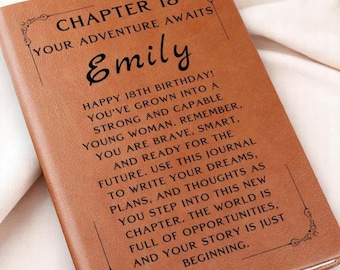 CHAPTER 18
YOUR ADVENTURE AWAITS
Emily
HAPPY 18TH BIRTHDAY!
YOU'VE GROWN INTO A
STRONG AND CAPABLE
YOUNG WOMAN. REMEMBER,
YOU ARE BRAVE, SMART,
AND READY FOR THE
FUTURE. USE THIS JOURNAL
TO WRITE YOUR DREAMS,
PLANS, AND THOUGHTS AS
YOU STEP INTO THIS NEW
CHAPTER. THE WORLD IS
FULL OF OPPORTUNITIES,
AND YOUR STORY IS JUST
BEGINNING.